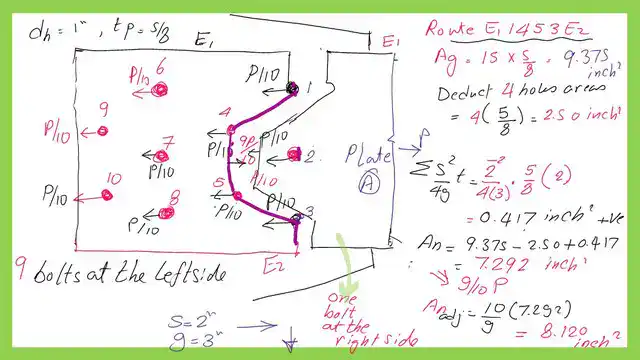 dh = 1", tp = 5/8
E1
E1
6
P/10
P/10
1
9
P/10
4
P/10
7
P/10
9P/10
P/10
2
Plate
A
P
P/10
10
P/10
8
P/10
5
P/10
P/10
3
E2
9 bolts at the leftside
one
bolt
at the
right side
S = 2"
g = 3"
Route E1 1 4 5 3 E2
Ag = 15 x 5/8 = 9.375 inch²
Deduct 4 holes areas
= 4(5/8) = 2.50 inch²
Σ S²/4g t = 2²/4(3) · 5/8 (2)
= 0.417 inch² +ve
An = 9.375 - 2.50 + 0.417
= 7.292 inch²
9/10 P
An adj = 10/9 (7.292)
= 8.120 inch²